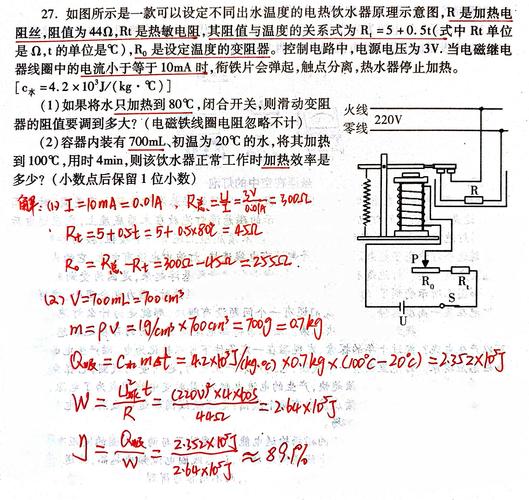 27. 如图所示是一款可以设定不同出水温度的电热饮水器原理示意图, R 是加热电
阻丝, 阻值为 44Ω, Rt 是热敏电阻, 其阻值与温度的关系式为 Rt =5+0.5t(式中 Rt 单位
是 Ω, t 的单位是℃), R₀ 是设定温度的变阻器。控制电路中, 电源电压为 3V. 当电磁继电
器线圈中的电流小于等于 10mA 时, 衔铁片会弹起, 触点分离, 热水器停止加热。
[c水=4.2×10³J/(kg·℃)]
(1)如果将水只加热到 80℃, 闭合开关, 则滑动变阻
器的阻值要调到多大? (电磁铁线圈电阻忽略不计)
(2)容器内装有 700mL、初温为 20℃的水, 将其加热
到 100℃, 用时 4min, 则该饮水器正常工作时加热效率是
多少? (小数点后保留 1 位小数)
火线
零线
220V
R
P
R₀
Rt
S
U
解: (1) I=10mA=0.01A, R总=U/I=3V/0.01A=300Ω
Rt=5+0.5t=5+0.5×80℃=45Ω
R₀=R总-Rt=300Ω-45Ω=255Ω.
(2) V=700mL=700cm³
m=ρV=1g/cm³×700cm³=700g=0.7kg
Q吸=C水m△t=4.2×10³J/(kg·℃)×0.7kg×(100℃-20℃)=2.352×10⁵J
W=U²t/R=(220V)²×4×60S/44Ω=2.64×10⁵J
η=Q吸/W=2.352×10⁵J/2.64×10⁵J≈89.1%